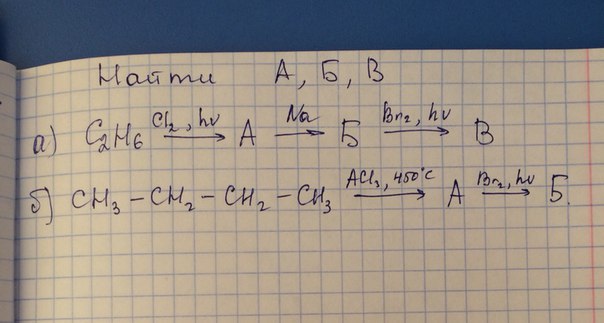 Найти А, Б, В
а) C₂H₆ —Cl₂, hν→ А —Na→ Б —Br₂, hν→ В
б) CH₃ – CH₂ – CH₂ – CH₃ —ACl₃, 450°C→ А —Br₂, hν→ Б.